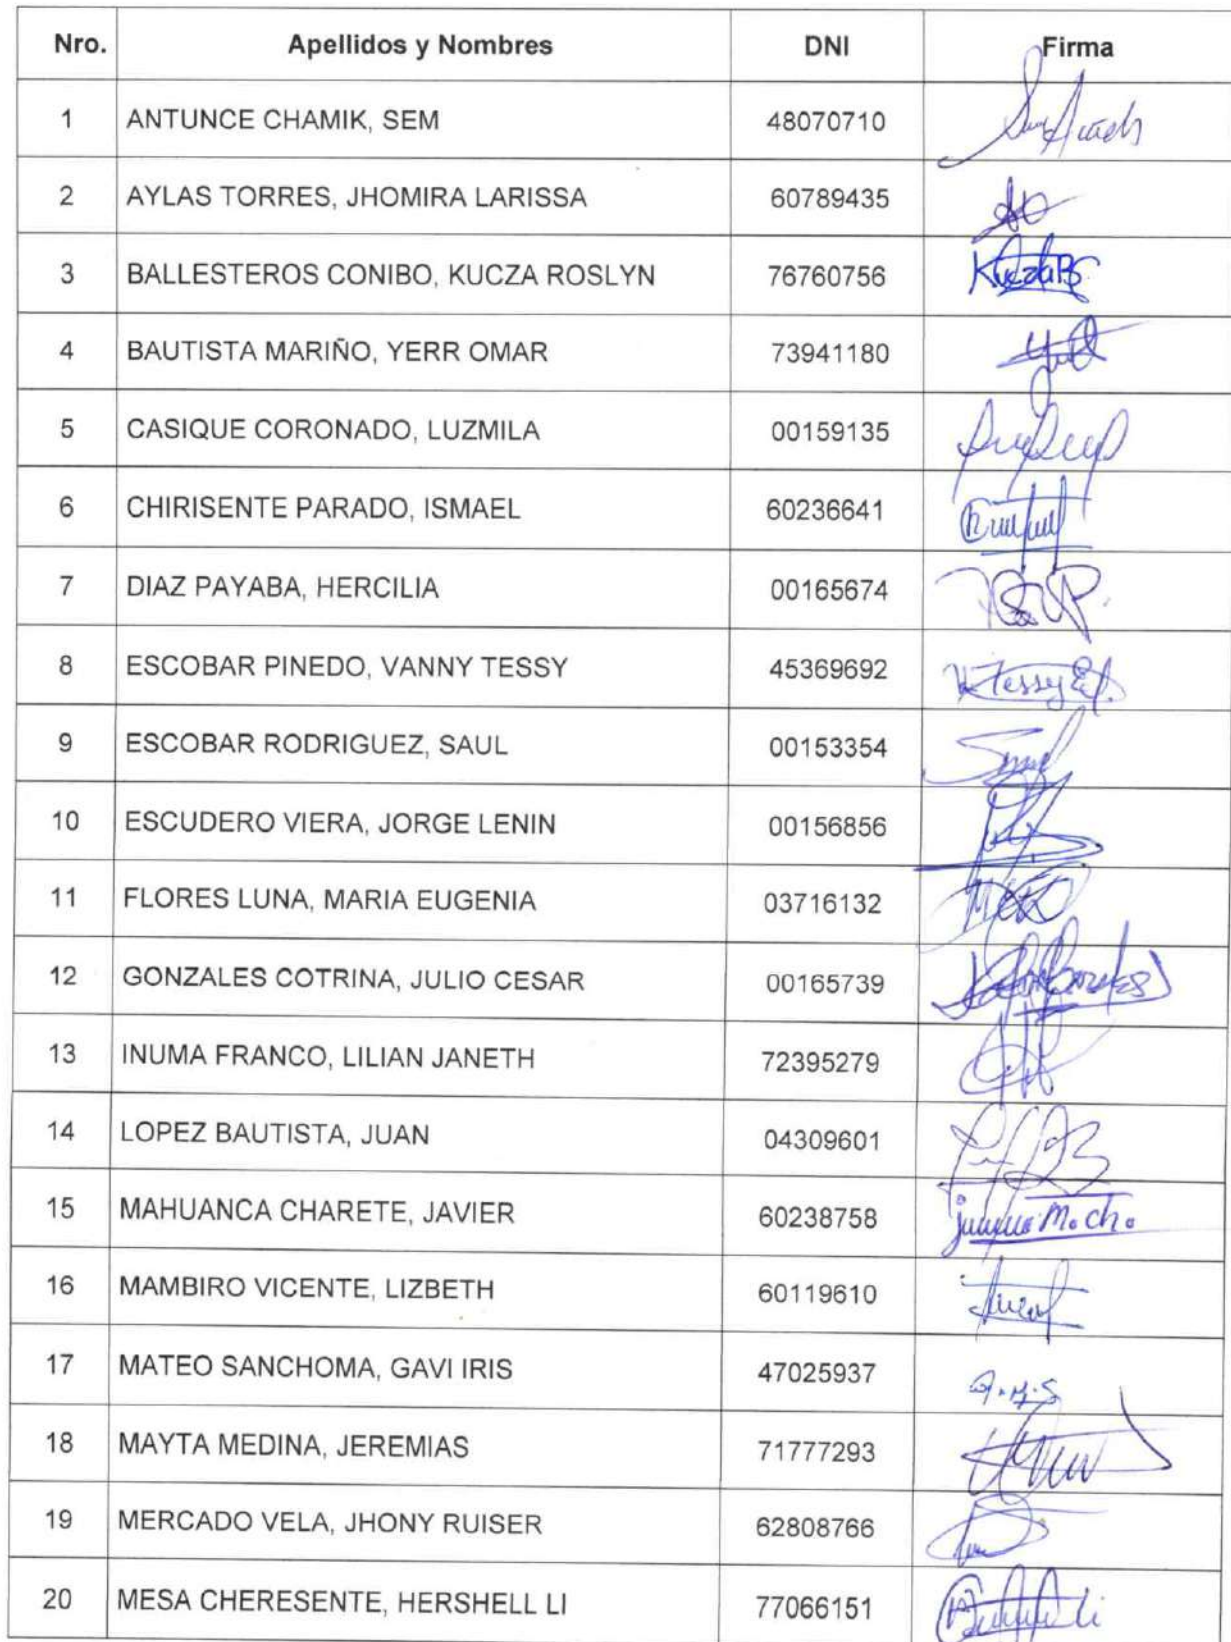 Nro. Apellidos y Nombres DNI Firma
1 ANTUNCE CHAMIK, SEM 48070710
2 AYLAS TORRES, JHOMIRA LARISSA 60789435
3 BALLESTEROS CONIBO, KUCZA ROSLYN 76760756
4 BAUTISTA MARIÑO, YERR OMAR 73941180
5 CASIQUE CORONADO, LUZMILA 00159135
6 CHIRISENTE PARADO, ISMAEL 60236641
7 DIAZ PAYABA, HERCILIA 00165674
8 ESCOBAR PINEDO, VANNY TESSY 45369692
9 ESCOBAR RODRIGUEZ, SAUL 00153354
10 ESCUDERO VIERA, JORGE LENIN 00156856
11 FLORES LUNA, MARIA EUGENIA 03716132
12 GONZALES COTRINA, JULIO CESAR 00165739
13 INUMA FRANCO, LILIAN JANETH 72395279
14 LOPEZ BAUTISTA, JUAN 04309601
15 MAHUANCA CHARETE, JAVIER 60238758
16 MAMBIRO VICENTE, LIZBETH 60119610
17 MATEO SANCHOMA, GAVI IRIS 47025937
18 MAYTA MEDINA, JEREMIAS 71777293
19 MERCADO VELA, JHONY RUISER 62808766
20 MESA CHERESENTE, HERSHELL LI 77066151